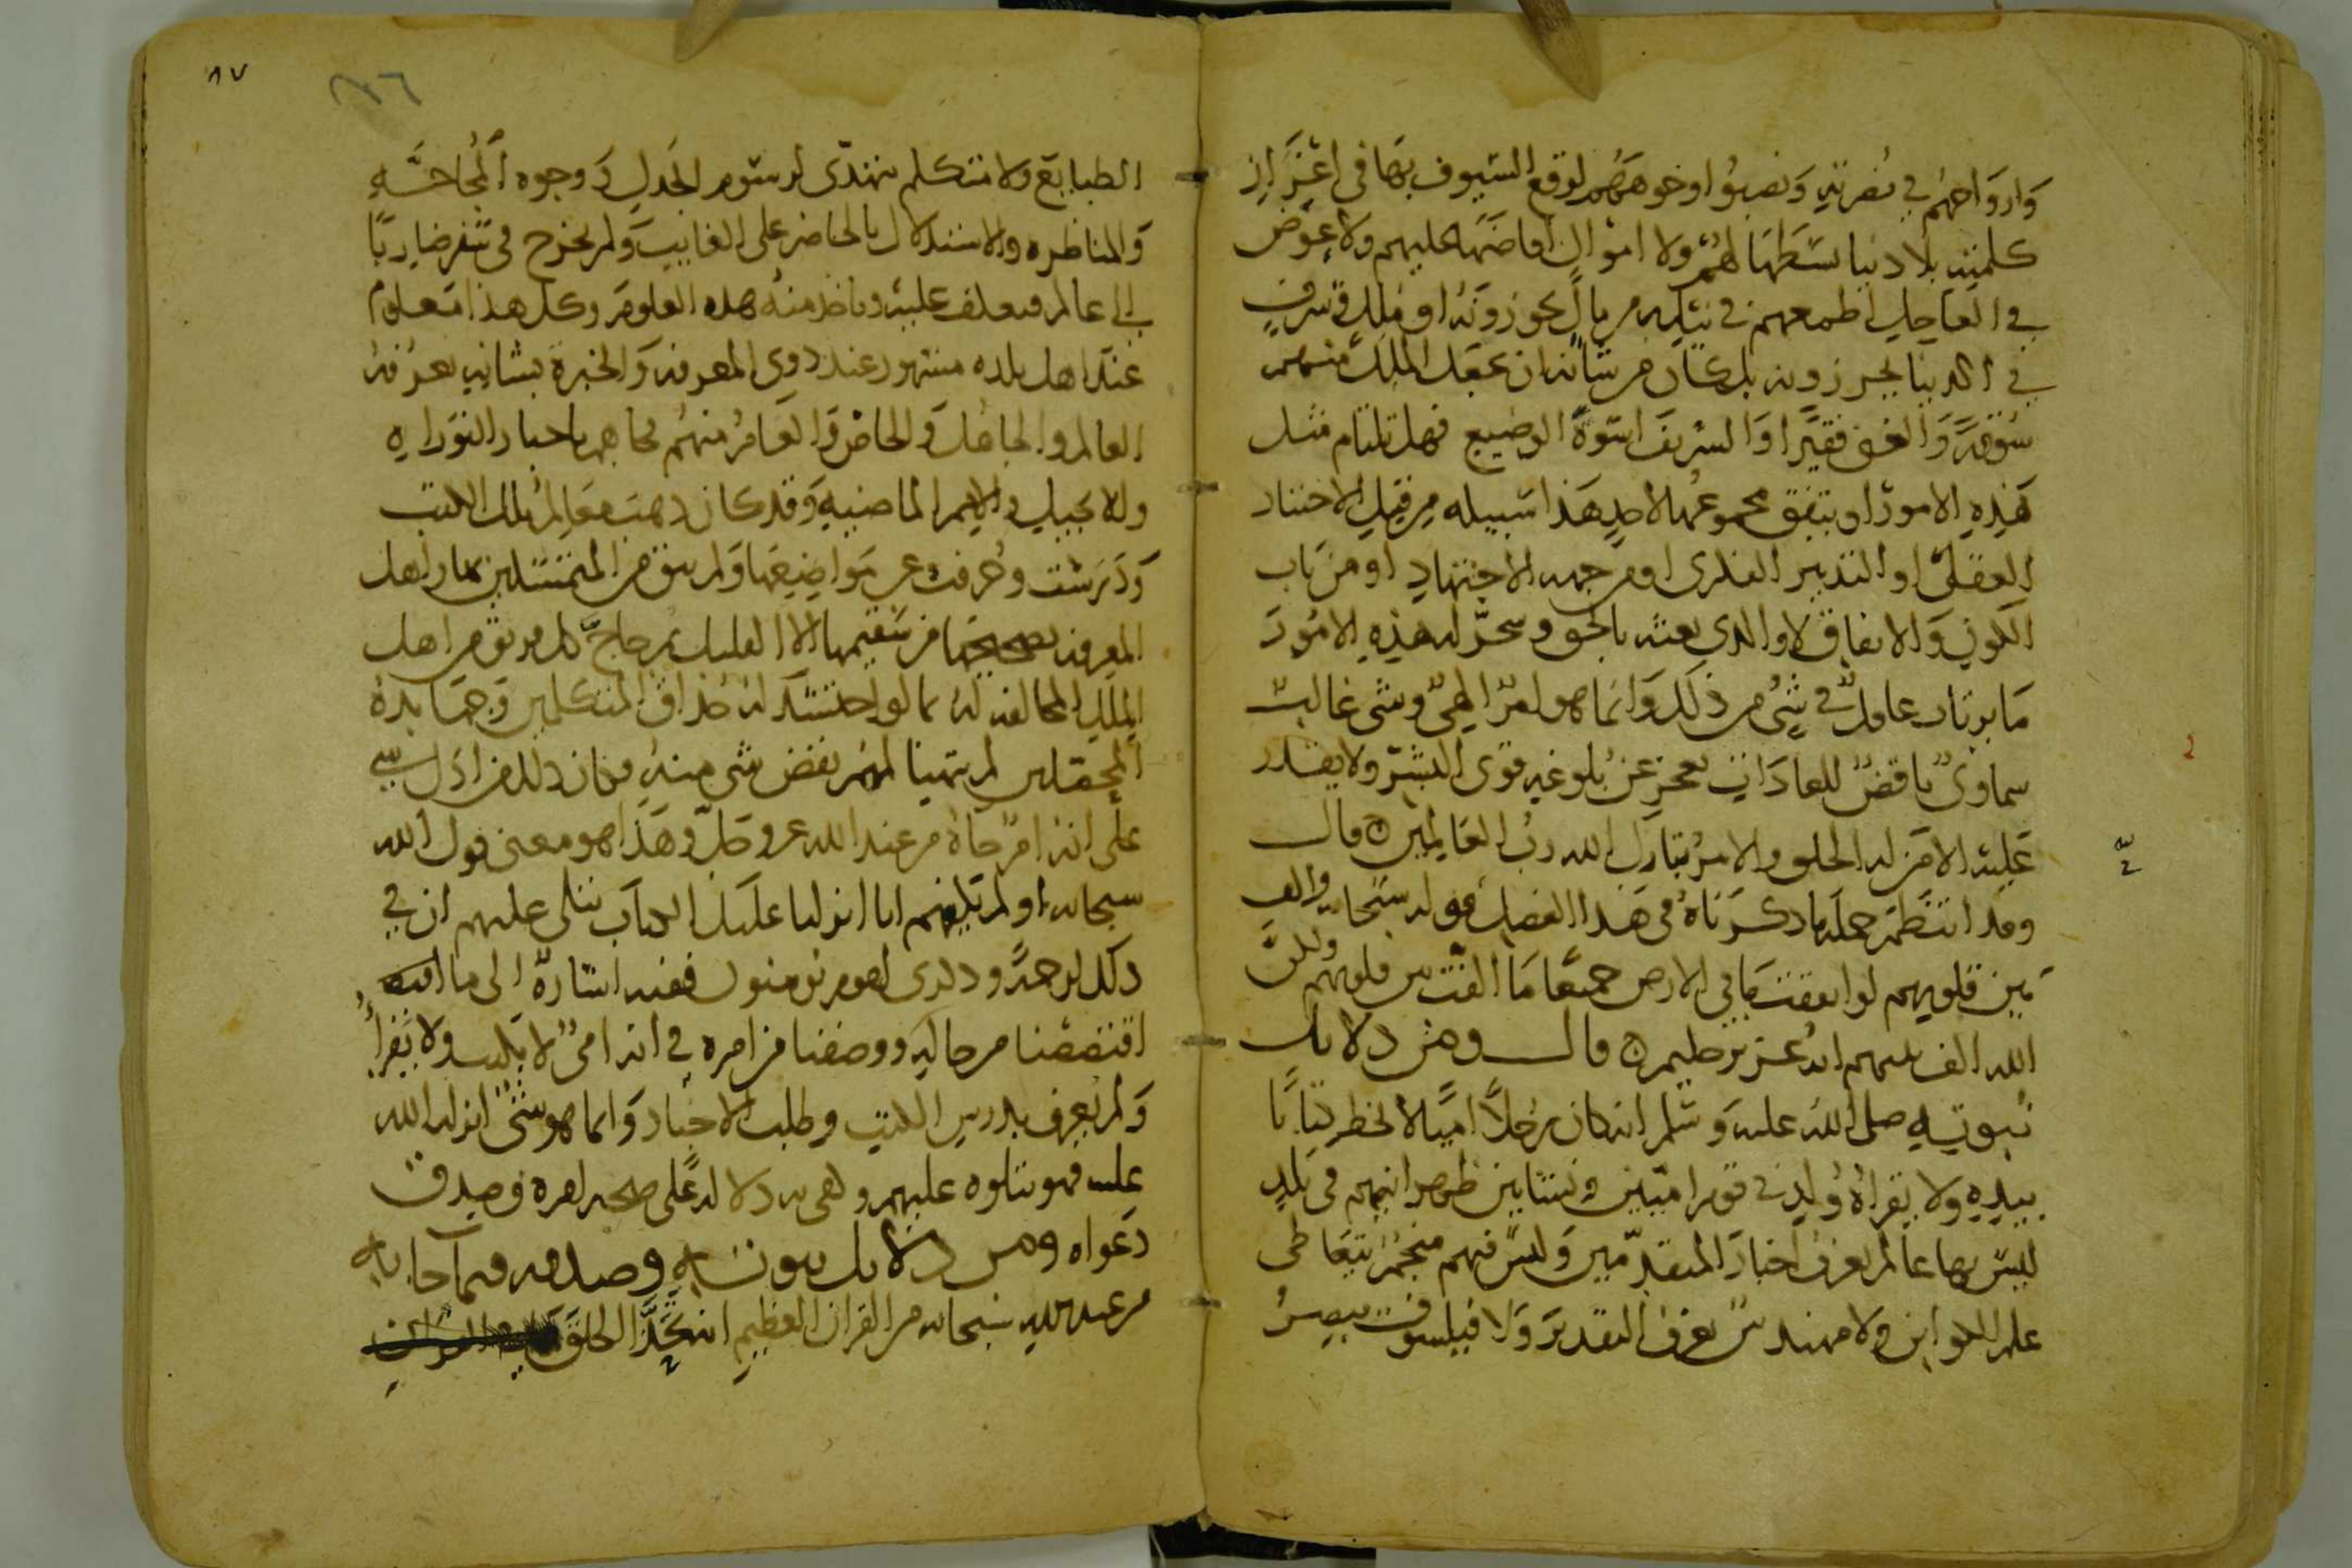 وارواحهم في نصرته ونصبوا وجوههم لوقع السيوف بها في اعزاز
كلمته بلا دنيا بسطها لهم ولا اموال افاضها عليهم ولا عوض
في العاجل اطمعهم في نيله من مال يحوزونه او ملك وشرف
في الدنيا يحرزونه بل كان من شانه ان يجعل الملك منهم
سوقة والغني فقيرا والشريف اسوة الوضيع فهل تلتام مثل
هذه الامور او يتفق مجموعها لاحد هذا سبيله من قبل الاختيار
العقلي او التدبير الفكري او من جهة الاجتهاد او من باب
الكون والاتفاق لا والذي بعثه بالحق وسخر له هذه الامور
ما يرتاب عاقل في شي من ذلك وانما هو امر الهي وشي غالب
سماوي ناقض للعادات يعجز عن بلوغه قوى البشر ولا يقدر
عليه الا من له الخلق والامر تبارك الله رب العالمين قال
وقد انتظم جملة ما ذكرناه في هذا الفصل قوله سبحانه والف
بين قلوبهم لو انفقت ما في الارض جميعا ما الفت بين قلوبهم ولكن
الله الف بينهم انه عزيز حكيم قال ومن دلايل
نبوته صلى الله عليه وسلم انه كان رجلا اميا لا يخط كتابا
بيده ولا يقراه ولد في قوم اميين ونشا بين ظهرانيهم في بلد
ليس بها عالم يعرف اخبار المتقدمين وليس فيهم منجم يتعاطى
علم الكواين ولا مهندس يعرف التقدير ولا فيلسوف يبصر
٨٧
الطبايع ولا متكلم يهتدي لرسوم الجدل ووجوه المحاجة
والمناظرة والاستدلال بالحاضر على الغايب ولم يخرج في سفر ضاربا
الى عالم فيعكف عليه وياخذ منه هذه العلوم وكل هذا معلوم
عند اهل بلده مشهور عند ذوي المعرفة والخبرة بشانه يعرفه
العالم والجاهل والخاص والعام منهم فجاهم باخبار التوراة
والانجيل والامم الماضية وقد كان ذهبت معالم تلك الكتب
ودرست وحرفت عن مواضعها ولم يبق من المتمسكين بها واهل
المعرفة بصحيحها من سقيمها الا القليل ثم حاج كل فريق من اهل
الملل المخالفة له بما لو احتشد له حذاق المتكلمين وجهابذة
المحصلين لم يتهيا لهم نقض شي منه فكان ذلك من ادل شي
على انه امر جاه من عند الله عز وجل وهذا هو معنى قول الله
سبحانه اولم يكفهم انا انزلنا عليك الكتاب يتلى عليهم ان في
ذلك لرحمة وذكرى لقوم يومنون ففيه اشارة الى ما
اقتصصنا من حاله ووصفنا من امره في انه امي لا يكتب ولا يقرا
ولم يعرف بدرس الكتب وطلب الاخبار وانما هو شي انزله الله
عليه فهو يتلوه عليهم وكفى به دلالة على صحة امره وصدق
دعواه ومن دلايل نبوته وصدقه فيما جا به
من عند الله سبحانه من القران العظيم انه تحدى الخلق